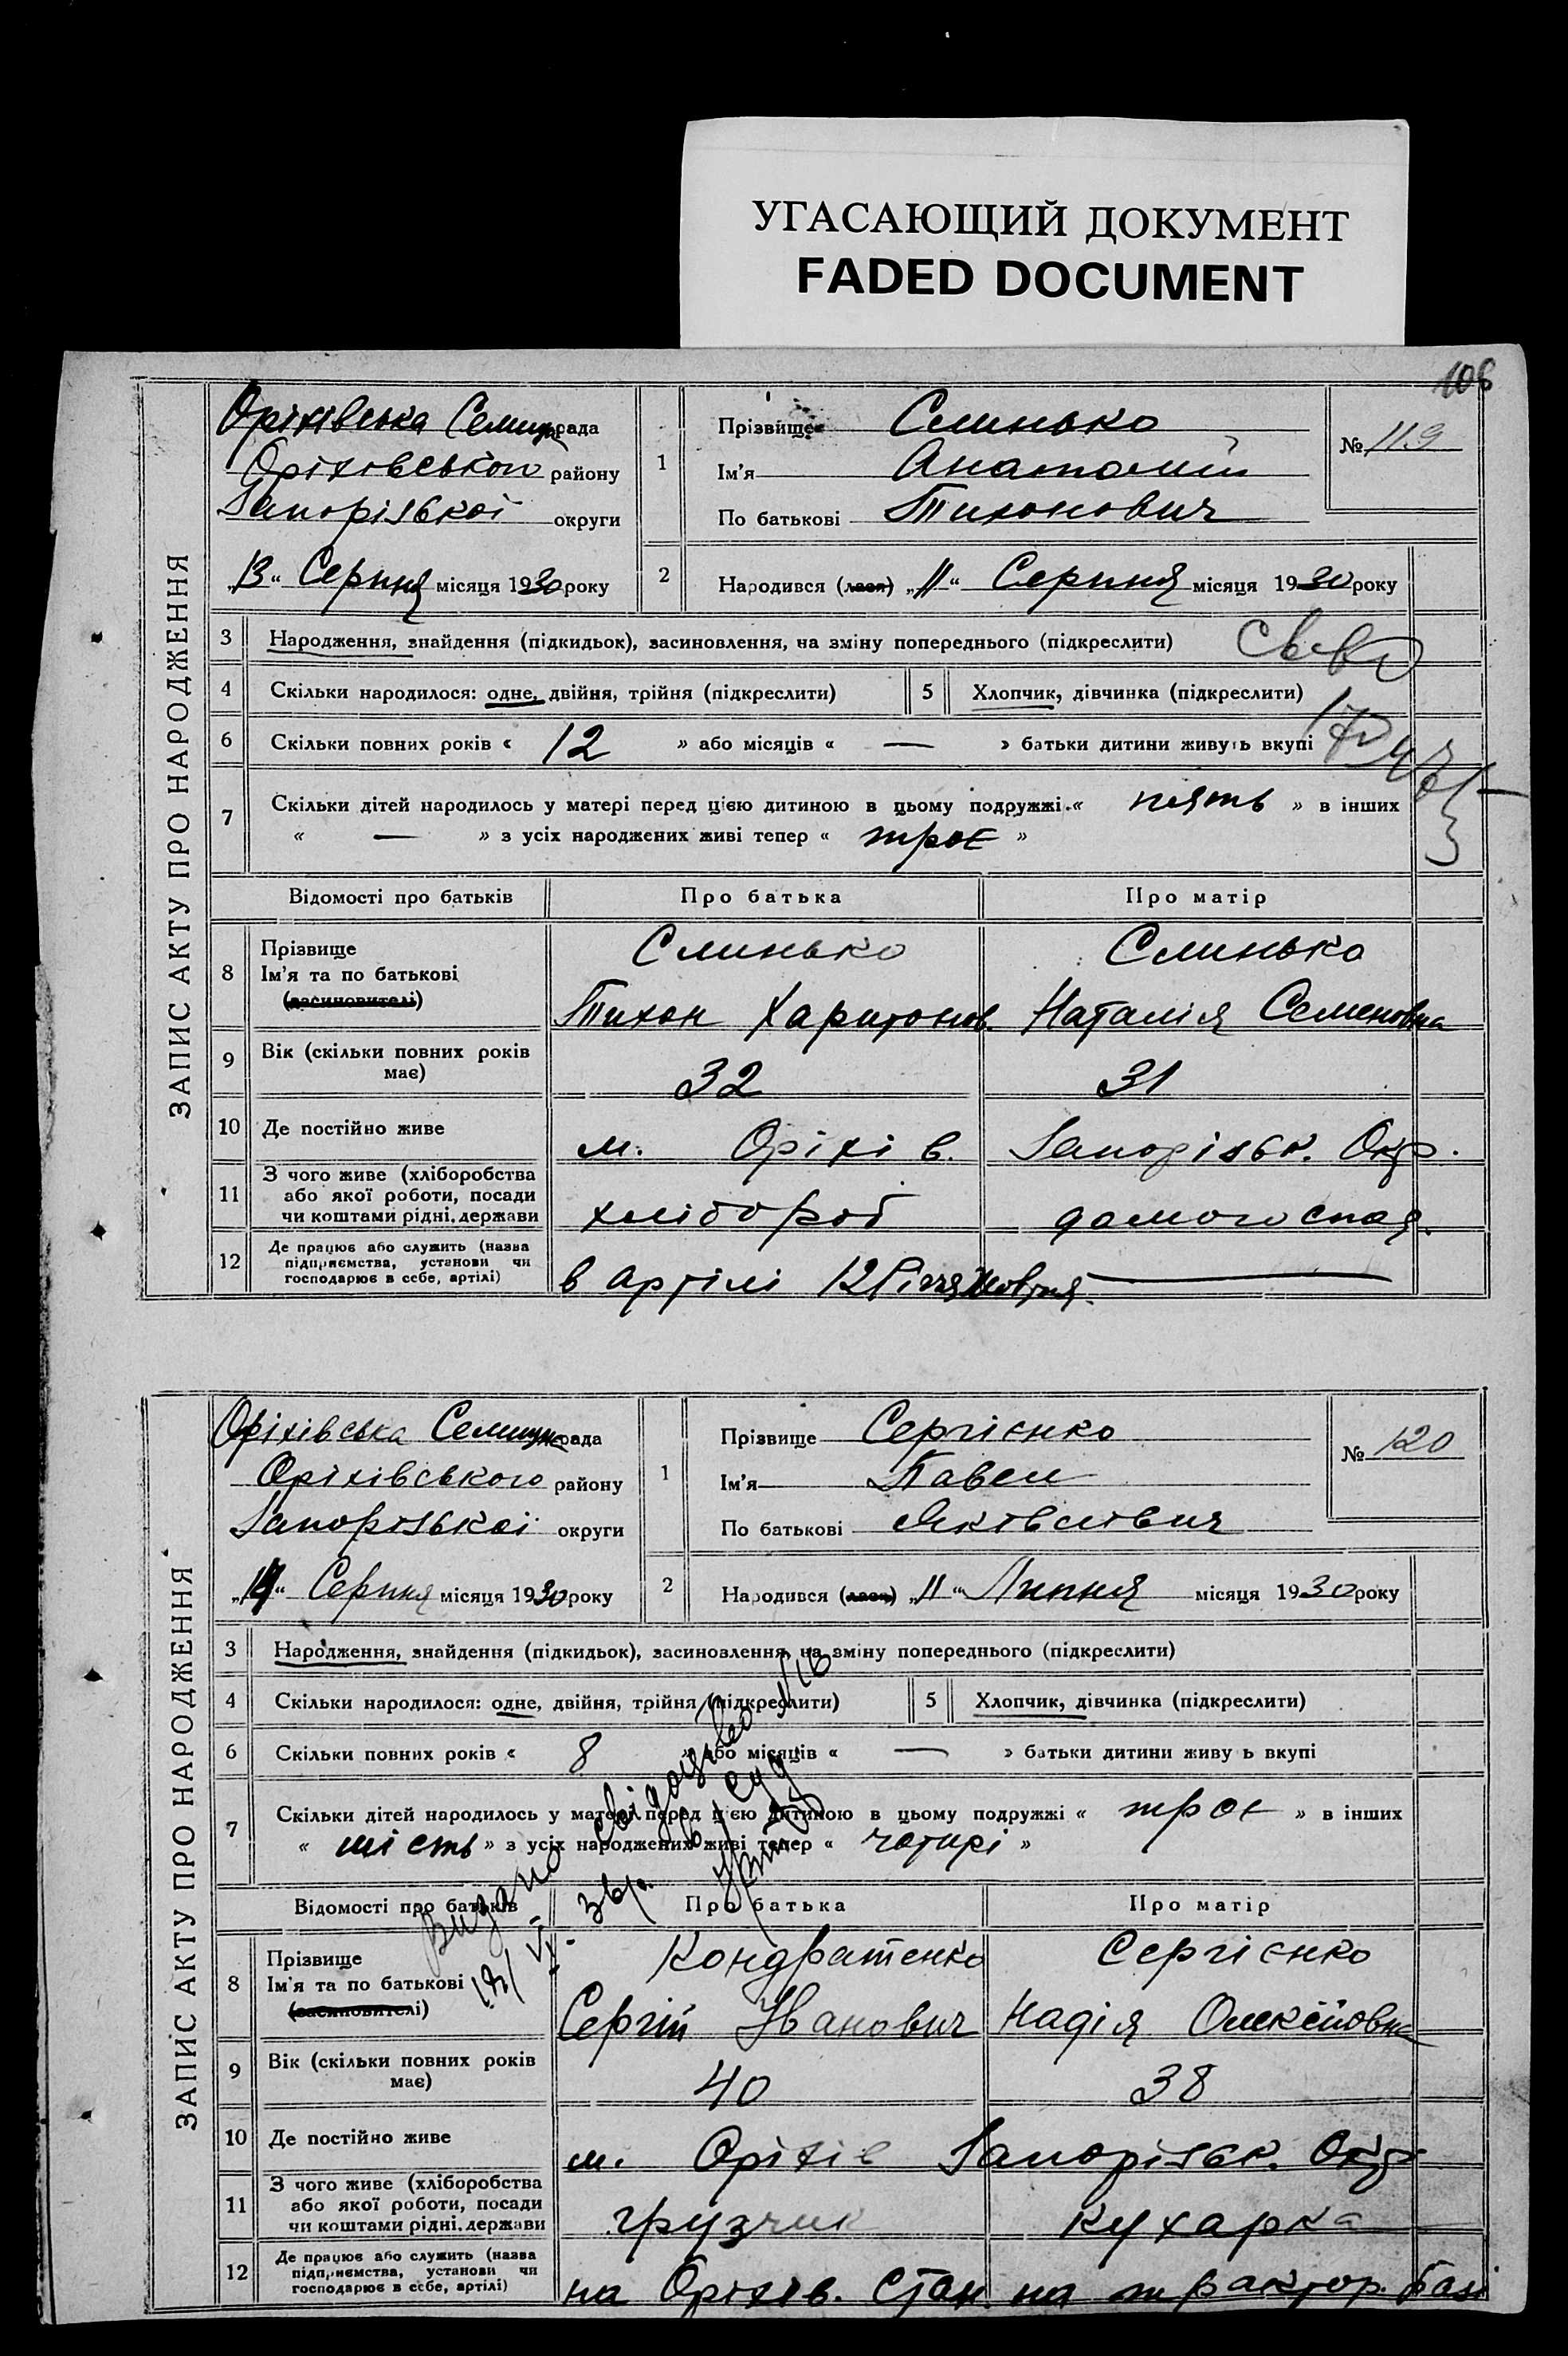 УГАСАЮЩИЙ ДОКУМЕНТ
FADED DOCUMENT
106
ЗАПИС АКТУ ПРО НАРОДЖЕННЯ
Оріхівська Селищ рада
Оріхівського району
Запорізької округи
„13“ Серпня місяця 1930 року
1 Прізвище Слинько
Ім'я Анатолій
По батькові Тихонович
№ 119
2 Народився (лася) „11“ Серпня місяця 1930 року
3 Народження, знайдення (підкидьок), засиновлення, на зміну попереднього (підкреслити)
4 Скільки народилося: одне, двійня, трійня (підкреслити) 5 Хлопчик, дівчинка (підкреслити)
6 Скільки повних років « 12 » або місяців « — » батьки дитини живуть вкупі
7 Скільки дітей народилось у матері перед цією дитиною в цьому подружжі « пять » в інших
« — » з усіх народжених живі тепер « троє »
Відомості про батьків Про батька Про матір
8 Прізвище Слинько Слинько
Ім'я та по батькові
(засиновителі) Тихон Харитонов. Наталія Семеновна
9 Вік (скільки повних років
має) 32 31
10 Де постійно живе м. Оріхів. Запорізьк. Окр.
11 З чого живе (хліборобства
або якої роботи, посади
чи коштами рідні, держави хлібороб домогоспод.
12 Де працює або служить (назва
підприємства, установи чи
господарює в себе, артілі) в артілі 12 Річчя Жовтня. —
ЗАПИС АКТУ ПРО НАРОДЖЕННЯ
Оріхівська Селищна рада
Оріхівського району
Запорізької округи
„14“ Серпня місяця 1930 року
1 Прізвище Сергієнко
Ім'я Павел
По батькові Яковлівич
№ 120
2 Народився (лася) „11“ Липня місяця 1930 року
3 Народження, знайдення (підкидьок), засиновлення, на зміну попереднього (підкреслити)
4 Скільки народилося: одне, двійня, трійня (підкреслити) 5 Хлопчик, дівчинка (підкреслити)
6 Скільки повних років « 8 » або місяців « — » батьки дитини живу ь вкупі
7 Скільки дітей народилось у матері перед цією дитиною в цьому подружжі « троє » в інших
« шість » з усіх народжених живі тепер « чотирі »
Видано свідоцтво
Відомості про батьків Про батька Про матір
8 Прізвище Кондратенко Сергієнко
Ім'я та по батькові
(засиновителі) Сергій Иванович Надія Олексійовна
9 Вік (скільки повних років
має) 40 38
10 Де постійно живе м. Оріхів Запорізьк. Окр
11 З чого живе (хліборобства
або якої роботи, посади
чи коштами рідні, держави грузчик кухарка
12 Де працює або служить (назва
підприємства, установи чи
господарює в себе, артілі) на Оріхів. Стан. на трактор. базі